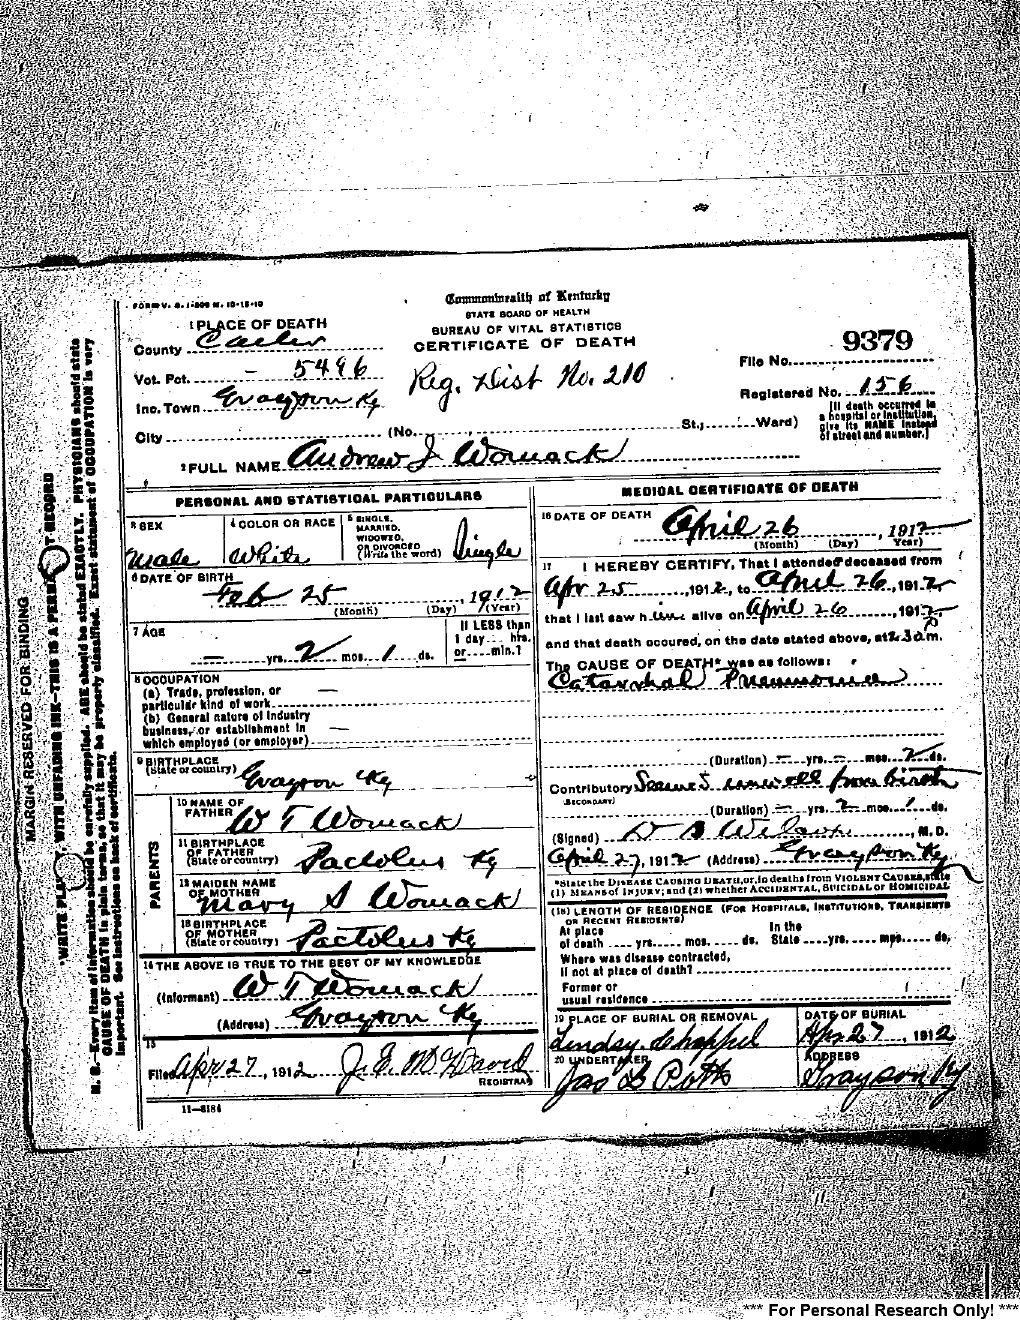 FORM V. S. 1-200 M. 10-15-10
Commonwealth of Kentucky
STATE BOARD OF HEALTH
BUREAU OF VITAL STATISTICS
CERTIFICATE OF DEATH
1 PLACE OF DEATH
County Carter
Vot. Pct. - 5496
Inc. Town Grayson Ky
Reg. Dist No. 210
File No. 9379
Registered No. 156
City (No. St., Ward)
[If death occurred in
a hospital or institution,
give its NAME instead
of street and number.]
2 FULL NAME Andrew J Womack
PERSONAL AND STATISTICAL PARTICULARS
3 SEX
Male
4 COLOR OR RACE
White
5 SINGLE,
MARRIED,
WIDOWED,
OR DIVORCED
(Write the word)
Single
6 DATE OF BIRTH
Feb 25, 1912
(Month) (Day) (Year)
7 AGE
— yrs. 2 mos. 1 ds.
If LESS than
1 day... hrs.
or.... min.?
8 OCCUPATION
(a) Trade, profession, or
particular kind of work —
(b) General nature of industry
business, or establishment in —
which employed (or employer)
9 BIRTHPLACE
(State or country) Grayson Ky
PARENTS
10 NAME OF
FATHER W T Womack
11 BIRTHPLACE
OF FATHER
(State or country) Pactolus Ky
12 MAIDEN NAME
OF MOTHER
Mary S Womack
13 BIRTHPLACE
OF MOTHER
(State or country) Pactolus Ky
14 THE ABOVE IS TRUE TO THE BEST OF MY KNOWLEDGE
(Informant) W T Womack
(Address) Grayson Ky
15
Filed Apr 27, 1912 J. E. McDavid
REGISTRAR
11—8184
MEDICAL CERTIFICATE OF DEATH
16 DATE OF DEATH
April 26, 1912
(Month) (Day) (Year)
17 I HEREBY CERTIFY, That I attended deceased from
Apr 25, 1912, to April 26, 1912,
that I last saw him alive on April 26, 1912,
and that death occured, on the date stated above, at 230 P m.
The CAUSE OF DEATH* was as follows:
Catarrhal Pneumonia
(Duration) — yrs. — mos. 2 ds.
Contributory Seems unwell from birth
(SECONDARY)
(Duration) — yrs. 2 mos. 1 ds.
(Signed) Wilson, M.D.
April 27, 1912 (Address) Grayson Ky
*State the DISEASE CAUSING DEATH, or, in deaths from VIOLENT CAUSES, state
(1) MEANS OF INJURY; and (2) whether ACCIDENTAL, SUICIDAL or HOMICIDAL
(18) LENGTH OF RESIDENCE (FOR HOSPITALS, INSTITUTIONS, TRANSIENTS
OR RECENT RESIDENTS)
At place In the
of death .... yrs..... mos..... ds. State .....yrs..... mos..... ds.
Where was disease contracted,
If not at place of death?
Former or
usual residence
19 PLACE OF BURIAL OR REMOVAL
Lindsy Chappel
DATE OF BURIAL
Apr 27, 1912
20 UNDERTAKER
Jas B Potts
ADDRESS
Grayson Ky
MARGIN RESERVED FOR BINDING
WRITE PLAINLY, WITH UNFADING INK—THIS IS A PERMANENT RECORD
N. B.—Every item of information should be carefully supplied. AGE should be stated EXACTLY. PHYSICIANS should state
CAUSE OF DEATH in plain terms, so that it may be properly classified. Exact statement of OCCUPATION is very
important. See instructions on back of certificate.
*** For Personal Research Only! ***